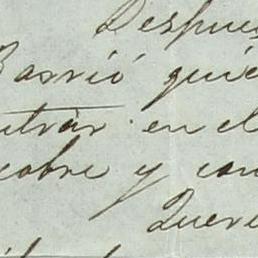 Despues
Barrió quie
ntrar en el
cobre y con
Quere